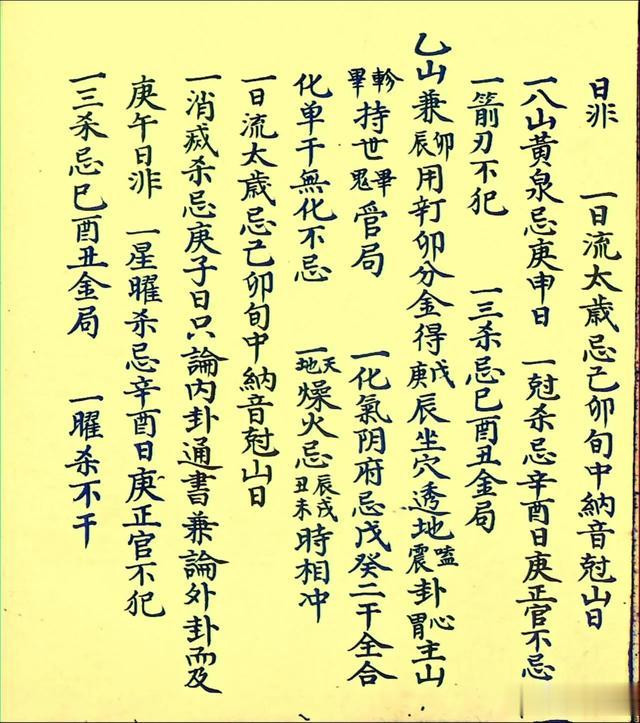 日非　一日流太歲忌己卯旬中納音尅山日
一八山黃泉忌庚申日　一尅杀忌辛酉日庚正官不忌
一箭刃不犯　一三杀忌巳酉丑金局
乙山兼卯辰用辛卯分金得戊庚辰坐穴透地嗑震卦心胃主山
軫畢持世畢鬼管局　一化氣阴府忌戊癸二干全合
化单干無化不忌　一天地燥火忌辰戌丑未時相冲
一日流太歲忌己卯旬中納音尅山日
一消滅杀忌庚子日只論内卦通書兼論外卦而及
庚午日非　一星曜杀忌辛酉日庚正官不犯
一三杀忌巳酉丑金局　一曜杀不干